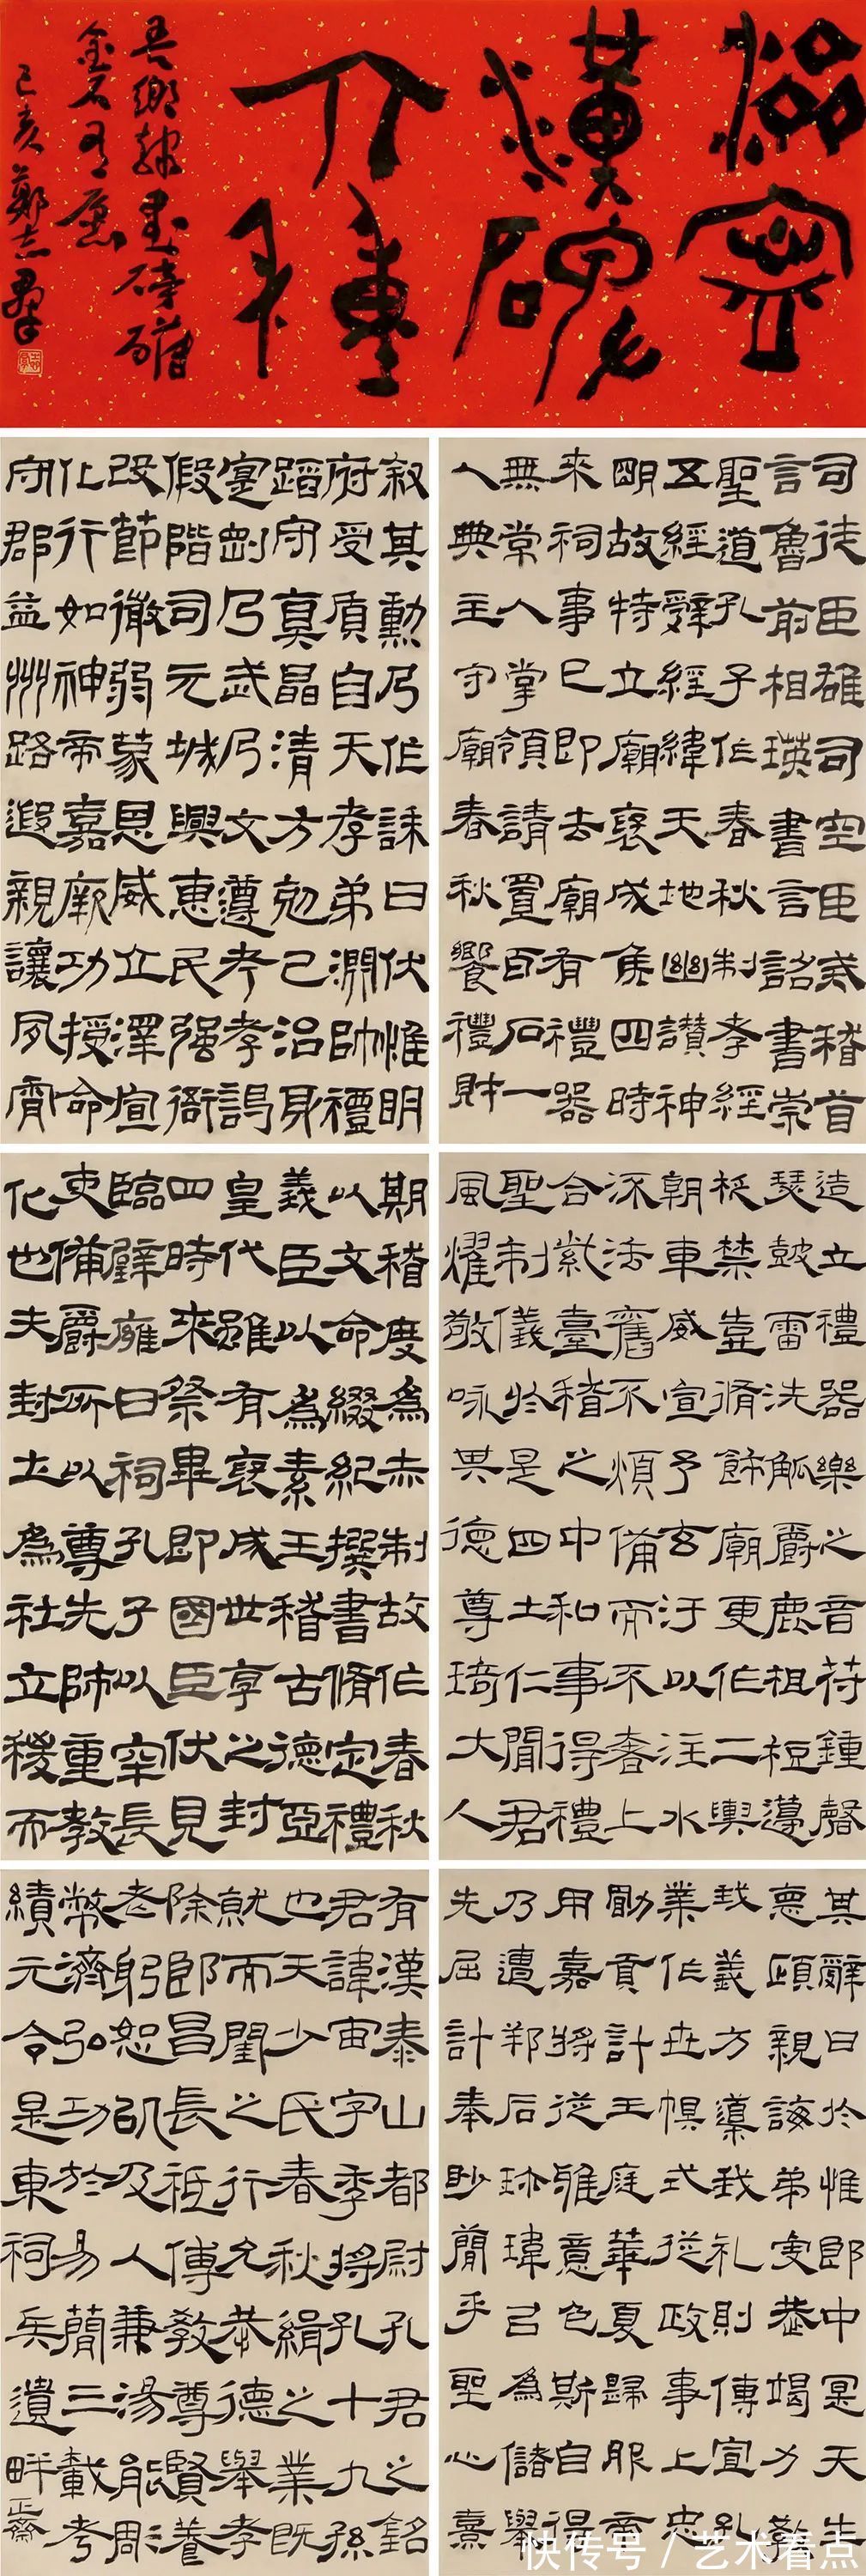 漢碑
八種
吾鄉隸書磅礴
金石有應
己亥鄭志群
司徒臣雄司空臣戒稽首
言魯前相瑛書言詔書崇
聖道孔子作春秋制孝經
五經辭經緯天地幽讚神
明故特立廟襃成侯四時
来祠事已即去廟有禮器
無常人掌領請置百石一
人典主守廟春秋饗禮財
敘其勳乃作誄曰伏惟明
府受質自天孝弟淵帥禮
蹈守真晶清方勉己治身
寔剛乃武乃文遵考孝謁
假階司元城興惠民强衙
改節徽弱蒙恩威立澤宣
化行如神帝嘉厥功授命
守郡益州路遐親讓夙宵
造立禮器樂之音苻鍾磬
瑟鼓雷洗觚爵鹿柤梪籩
柉禁壼脩飾廟更作二輿
朝車威宣予玄汙以注水
沠法舊不煩備而不奢上
合紫臺稽之中和事得禮
聖制儀於是四土仁聞君
風燿敬咏其德尊琦大人
期稽度為赤制故作春秋
以文命綴紀撰書脩定禮
義臣以為素王稽古德亞
皇代雖有襃成世享之封
四時來祭畢即國臣伏見
臨璧廱日祠孔子以宰長
吏備爵所以尊先師重教
化也夫封土為社立稷而
其辭曰於惟郎中寔天生
悳頤親誨弟虔恭竭力教
我義方導我礼則傳宣孔
業作世幬式從政事上忠
勤貢計王庭華夏歸服帝
用嘉將從雅意色斯自得
乃遭邦后珍瑋吕為儲舉
先屈計奉眇簡乎聖心熹
有漢泰山都尉孔君之銘
君諱宙字季將孔十九孫
也天少氏春秋緝之業既
就而閨之行允恭德舉孝
除郎昌長祗傳教尊賢養
老躬恕矶及人兼湯能周
幣濟弘功於易簡三載考
績元令是東祠兵遺畔正齋
快传号/艺术看点